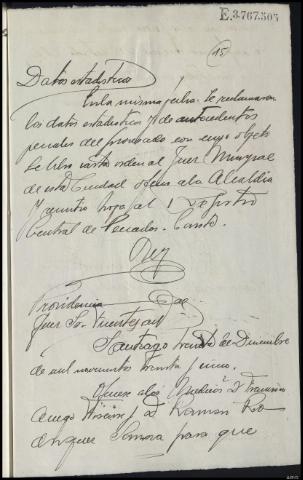 E.3.767.505
15
Datos estadística
En la misma fecha se reclamaron
los datos estadística y de antecedentes
penales del procesado con cuyo objeto
se libro carta orden al Juez Municipal
de esta Ciudad oficio a la Alcaldia
y remitio hoja al Registro
Central de Penados. Consta.
Rey
Providencia
Juez Sr. Fuentes
Santiago treinta de Diciembre
de mil novecientos treinta y uno.
a los Medicos D. Francisco
y D. Ramon
Zamora para que